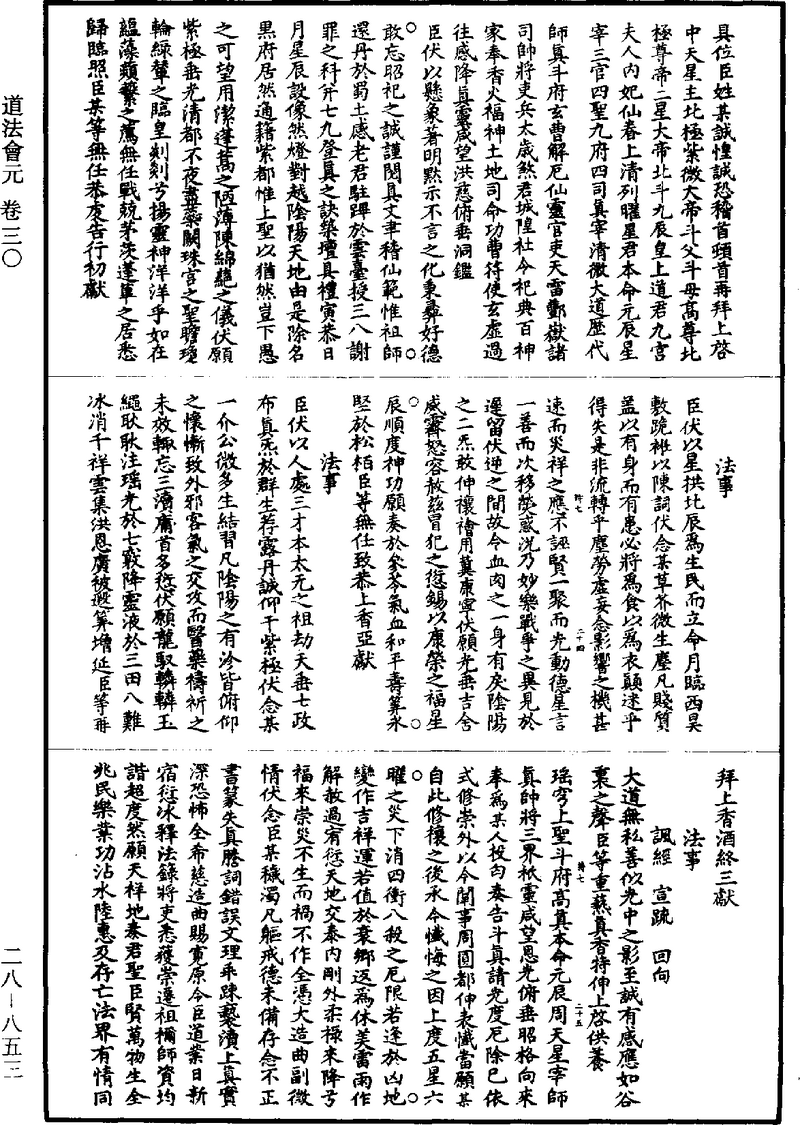 道法會元 卷三〇
二八—八五三
具位臣姓某誠惶誠恐稽首頓首再拜上啓
中天星主北極紫微大帝斗父斗母高尊北
極尊帝二星大帝北斗九辰皇上道君九宮
夫人內妃仙眷上清列曜星君本命元辰星
宰三官四聖九府四司眞宰清微大道歷代
師眞斗府玄曹解厄仙靈官吏天雷酆嶽諸
司帥將吏兵太歲煞君城隍社令祀典百神
家奉香火福神土地司命功曹符使玄虛過
往感降眞靈咸望洪慈俯垂洞鑑
臣伏以懸象著明黙示不言之化秉彝好德
敢忘昭祀之誠謹閱眞文聿稽仙範惟祖師
還丹於蜀土感老君駐蹕於雲臺授三八謝
罪之科斧七九登眞之訣築壇具禮寅恭日
月星辰設像然燈對越陰陽天地由是除名
黒府居然通籍紫都惟上聖以猶然豈下愚
之可望用潔蓬蒿之陋薄陳綿蕝之儀伏願
紫極垂光清都不夜蘂闕珠宮之聖瞻瓊
輪綠輦之臨皇剡剡兮揚靈神洋洋乎如在
藴藻蘋蘩之薦無任戰兢茅茨蓬蓽之居悉
歸臨照臣某等無任恭虔告行初獻
法事
臣伏以星拱北辰爲生民而立命月臨西昊
敷跪袵以陳詞伏念某草芥微生塵凡賤質
蓋以有身而有患必將爲食以爲衣顛迷乎
得失是非流轉乎塵勞虛妄念影響之機甚
速而災祥之應不誣賢一聚而光動德星言
一善而次移熒惑況乃妙樂戰爭之異見於
遲留伏逆之間故今血肉之一身有戾陰陽
之二炁敢伸禳禬用冀康寧伏願光垂吉舍
咸霽怒容赦茲冒犯之愆錫以康榮之福星
辰順度神功願奏於參苓氣血和平壽算永
堅於松栢臣等無任致恭上香亞獻
法事
臣伏以人處三才本太元之祖劫天垂七政
布眞炁於群生荐露丹誠仰干紫極伏念某
一介公微多生結習凡陰陽之有沴皆俯仰
之懷慚致外邪客氣之交攻而醫藥禱祈之
未效輙忘三瀆庸首多愆伏願龍馭轔轔玉
繩耿耿注瑶光於七竅降靈液於三田八難
冰消千祥雲集洪恩廣被遐算增延臣等再
拜上香酒終三獻
法事
諷經 宣疏 回向
大道無私善似光中之影至誠有感應如谷
裏之聲臣等重爇眞香持伸上啓供養
瑶穹上聖斗府高眞本命元辰周天星宰師
眞帥將三界祇靈咸望恩光俯垂昭格向來
奉爲某人投勻奏告斗眞請光度厄除已依
式修崇外以今聞事周圓都伸表懺當願某
自此修禳之後永今懺悔之因上度五星六
曜之災下消四衝八殺之厄限若逢於凶地
變作吉祥運若値於衰鄉返爲休美雷雨作
解赦過宥愆天地交泰內剛外柔祿來降兮
福來崇災不生而禍不作全憑大造曲副微
情伏念臣某穢濁凡軀戒德未備存念不正
書篆失眞謄詞錯誤文理乖踈褻瀆上眞實
深恐怖全希慈造曲賜寬原今臣道業日新
宿愆冰釋法錄將吏悉獲崇遷祖禰師資均
諧超度然願天祥地泰君聖臣賢萬物生全
兆民樂業功沾水陸惠及存亡法界有情同